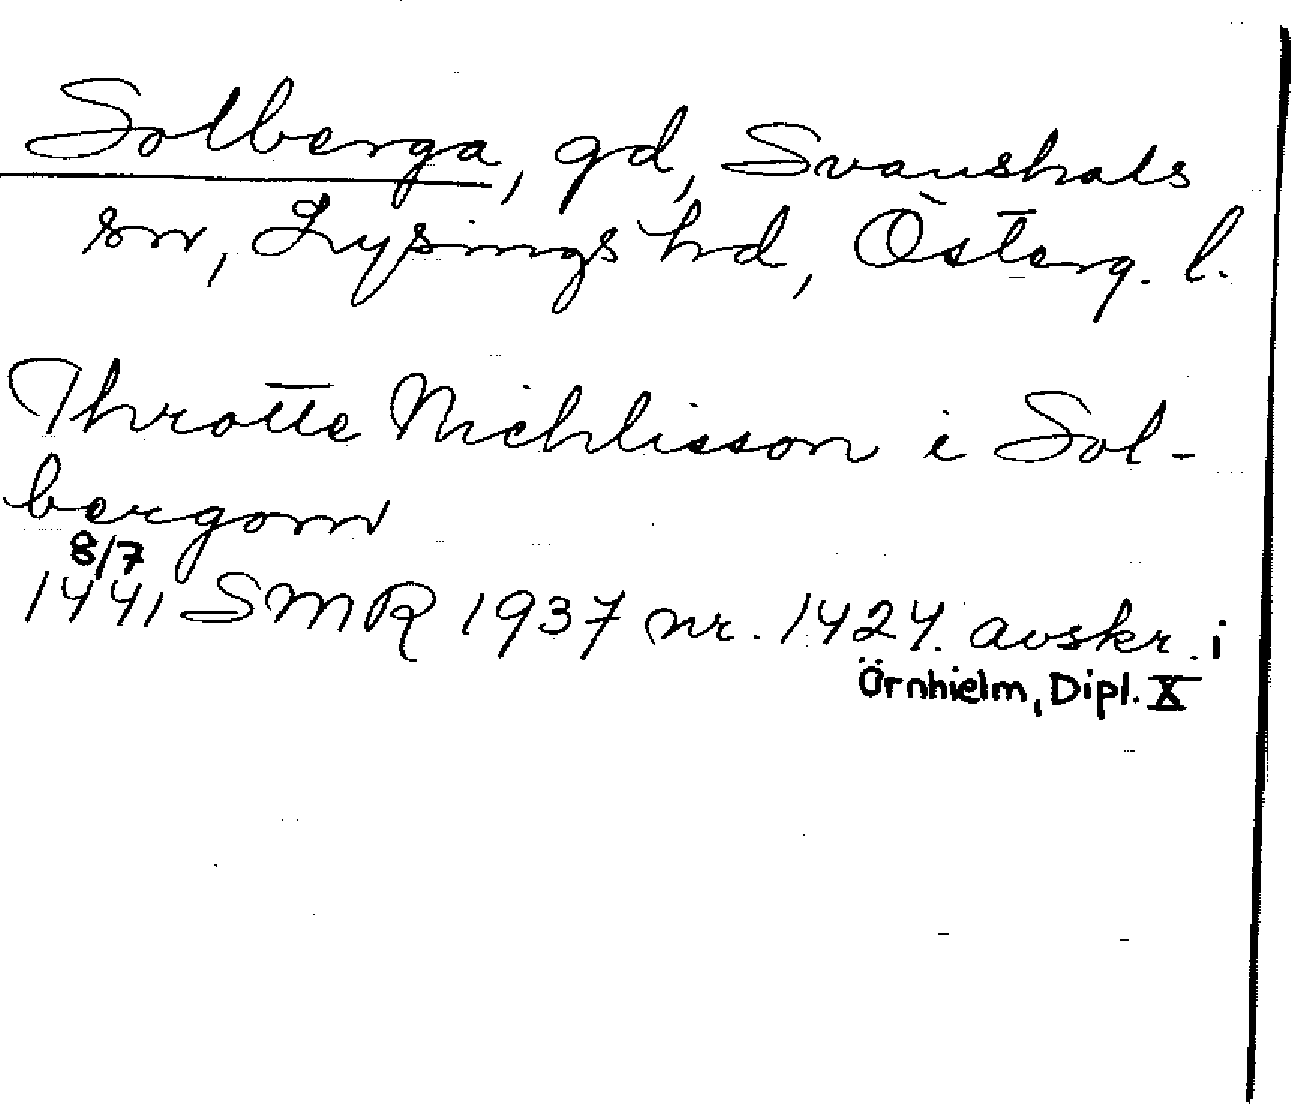 Solberga, gd, Svanshals
sn, Lysings hd, Österg. l.
Throtte Nichlisson i Sol-
bergom
8/7
1441 SMR 1937 nr. 1424. avskr. i
Örnhielm, Dipl. X